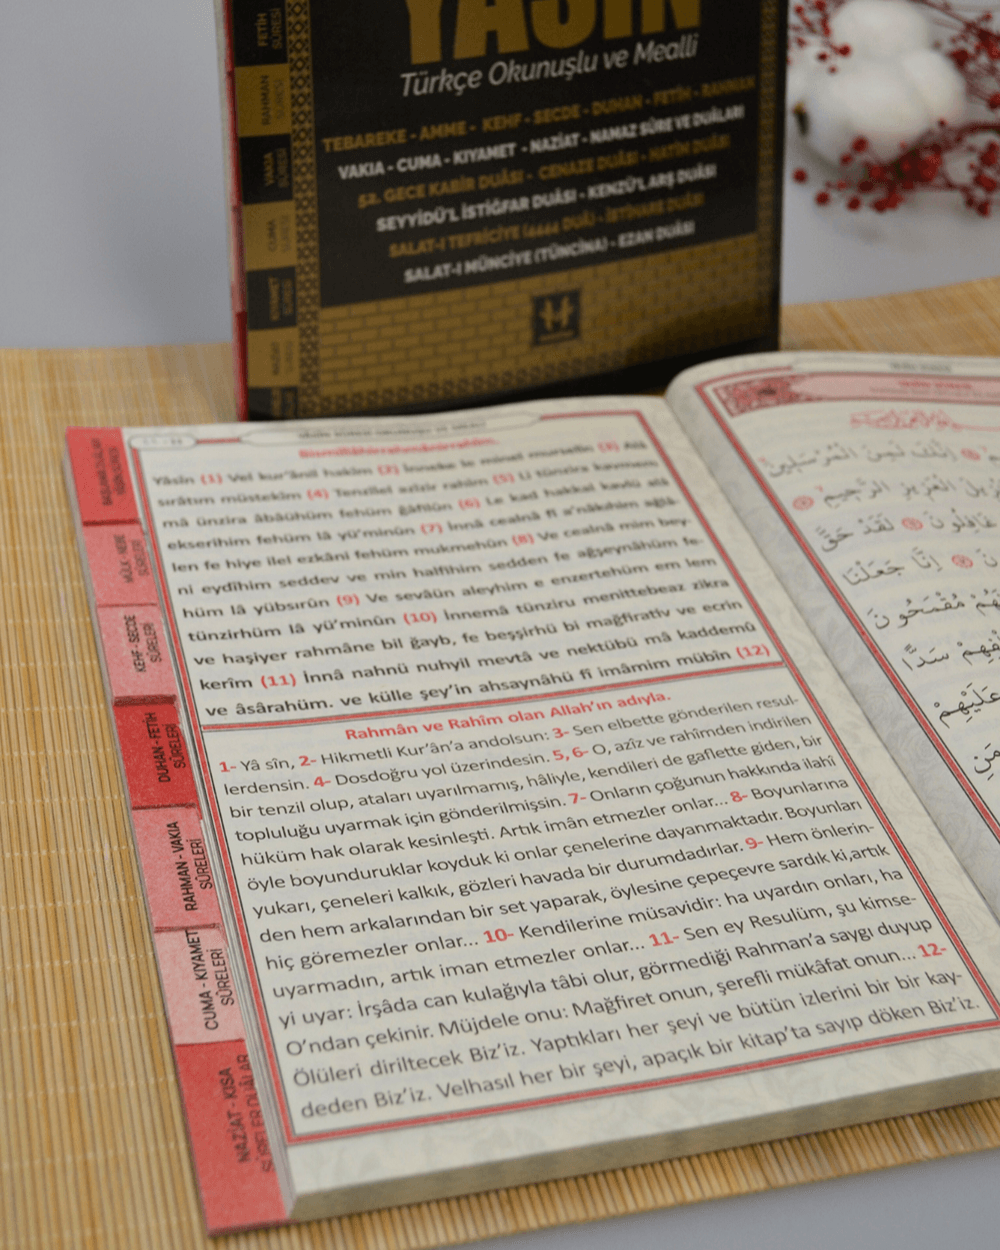 YASİN
Türkçe Okunuşlu ve Mealli
TEBAREKE - AMME - KEHF - SECDE - DUHAN - FETİH - RAHMAN
VAKIA - CUMA - KIYAMET - NAZİAT - NAMAZ SÛRE VE DUÂLARI
52. GECE KABİR DUÂSI - CENAZE DUÂSI - HATİM DUÂSI
SEYYİDÜ'L İSTİĞFAR DUÂSI - KENZÜ'L ARŞ DUÂSI
SALAT-I TEFRİCİYE (4444 DUÂ) - İSTİHARE DUÂSI
SALAT-I MÜNCİYE (TÜNCİNA) - EZAN DUÂSI
FETİH
SÛRESİ
RAHMAN
SÛRESİ
VAKIA
SÛRESİ
CUMA
SÛRESİ
Bismillâhirrahmânirrahîm.
Yâsîn (1) Vel kur'ânil hakîm (2) İnneke le minel murselîn (3) Alâ
sırâtım müstekîm (4) Tenzîlel azîzir rahîm (5) Li tünzira kavmem
mâ ünzira âbâühüm fehüm ğâfilûn (6) Le kad hakkal kavlü alâ
ekserihim fehüm lâ yü'minûn (7) İnnâ cealnâ fî a'nâkıhim ağlâ-
len fe hiye ilel ezkâni fehüm mukmehûn (8) Ve cealnâ mim bey-
ni eydîhim seddev ve min halfihim sedden fe ağşeynâhüm fe-
hüm lâ yübsırûn (9) Ve sevâün aleyhim e enzertehüm em lem
tünzirhüm lâ yü'minûn (10) İnnemâ tünziru menittebeaz zikra
ve haşiyer rahmâne bil ğayb, fe beşşirhü bi mağfirativ ve ecrin
kerîm (11) İnnâ nahnü nuhyil mevtâ ve nektübü mâ kaddemû
ve âsârahüm. ve külle şey'in ahsaynâhü fî imâmim mübîn (12)
Rahmân ve Rahîm olan Allah'ın adıyla.
1- Yâ sîn, 2- Hikmetli Kur'ân'a andolsun: 3- Sen elbette gönderilen resul-
lerdensin. 4- Dosdoğru yol üzerindesin. 5, 6- O, azîz ve rahîmden indirilen
bir tenzil olup, ataları uyarılmamış, hâliyle, kendileri de gaflette giden, bir
topluluğu uyarmak için gönderilmişsin. 7- Onların çoğunun hakkında ilahî
hüküm hak olarak kesinleşti. Artık imân etmezler onlar... 8- Boyunlarına
öyle boyunduruklar koyduk ki onlar çenelerine dayanmaktadır. Boyunları
yukarı, çeneleri kalkık, gözleri havada bir durumdadırlar. 9- Hem önlerin-
den hem arkalarından bir set yaparak, öylesine çepeçevre sardık ki,artık
hiç göremezler onlar... 10- Kendilerine müsavidir: ha uyardın onları, ha
uyarmadın, artık iman etmezler onlar... 11- Sen ey Resulüm, şu kimse-
yi uyar: İrşâda can kulağıyla tâbi olur, görmediği Rahman'a saygı duyup
O'ndan çekinir. Müjdele onu: Mağfiret onun, şerefli mükâfat onun... 12-
Ölüleri diriltecek Biz'iz. Yaptıkları her şeyi ve bütün izlerini bir bir kay-
deden Biz'iz. Velhasıl her bir şeyi, apaçık bir kitap'ta sayıp döken Biz'iz.
MÜLK - NEBE
SÛRELERİ
KEHF - SECDE
SÛRELERİ
DUHAN - FETİH
SÛRELERİ
RAHMAN - VAKIA
SÛRELERİ
CUMA - KIYAMET
SÛRELERİ
NAZİAT - KISA
SÛRELER DUÂLAR
إِنَّكَ لَمِنَ الْمُرْسَلِينَ
الْعَزِيزِ الرَّحِيمِ
غَافِلُونَ لَقَدْ حَقَّ
إِنَّا جَعَلْنَا
مُقْمَحُونَ
سَدًّا
عَلَيْهِمْ
مَنِ